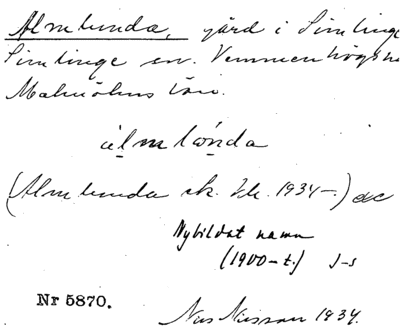 Almlunda, gård i Simlinge
Simlinge sn. Vemmenhögs h
Malmöhus län.
àlmlónda
(Almlunda sk. 1934–)
Nybildat namn
(1900-t.) J-s
Nr 5870.
Nils Nilsson 1934.